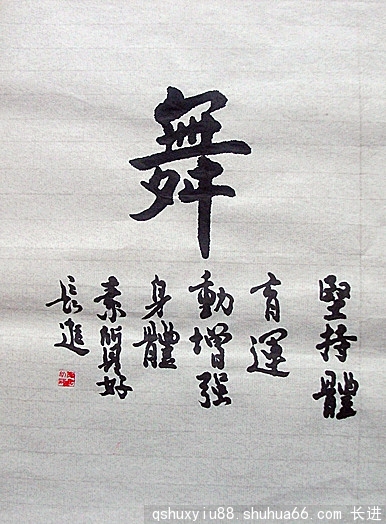 舞
堅持體
育運
動增强
身體
素質好
長進
qshuxyiu88 shuhua66.com 长进